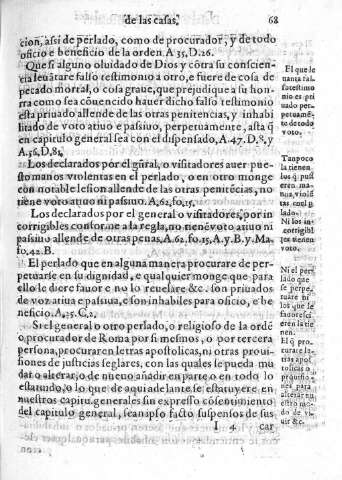 de las casas. 68
cion, assi de perlado, como de procurador, y de todo
oficio e beneficio de la orden. A. 35, D. 26.
Que si alguno olvidado de Dios y cõtra su conscien-
cia leuãtare falso testimonio a otro, e fuere de cosa de
pecado mortal, o cosa graue, que prejudique a su hon-
rra como sea cõuencido hauer dicho falso testimonio
esta priuado allende de las otras penitencias, y inhabi
litado de voto atiuo e passiuo, perpetuamente, asta q̃
en capitulo general sea con el dispensado, A. 47. D, 8, y
A, 56, D, 81,
Los declarados por el gñral, o visitadores auer pue-
sto manos violentas en el perlado, o en otro monge
con notable lesion allende de las otras penitẽcias, no
tiene voto atiuo ni passiuo. A. 62, fo, 15,
Los declarados por el general o visitadores, por in
corrigibles conforme a la regla, no tienẽ voto atiuo ni
passiuo allende de otras penas, A. 62, fo, 15, A. y B. y Ma,
fo, 42. B.
El perlado que en alguna manera procurare de per-
petuarse en su dignidad, e qualquier monge que para
ello le diere fauor e no lo reuelare &c. son priuados
de voz atiua e passiua, e son inhabiles para oficio, e be
neficio. A, 25. C, 2,
Si el general o otro perlado, o religioso de la ordẽ
o procurador de Roma por si mesmos, o por tercera
persona, procuraren letras apostolicas, ni otras proui-
siones de justicias seglares, con las quales se pueda mu
dar o alterar, o de nueuo añadir en parte o en todo lo
estatuido, o lo que de aqui adelante se estatuyere en
nuestros capitu. generales sin expresso cõsentimiento
del capitulo general, sean ipso facto suspensos de sus
I 4 car
El que le
uanta fal-
so testimo
nio es pri
uado per-
petuamẽ-
te de todo
voto.
Tanpoco
la tienen
los q̃ pusi
eren ma-
nos violẽ
tas en el p̃
lado.
Ni los in-
corrigibl
es tienen
voto.
Ni el per
lado que
se perpe-
tuare ni
los que le
fauoresci
eren la tie
nen.
El q̃ pro-
curare le-
tras apo
stolicas o
prouisio-
nes para
alterar nu
estro mo-
do de vi-
uir &c.